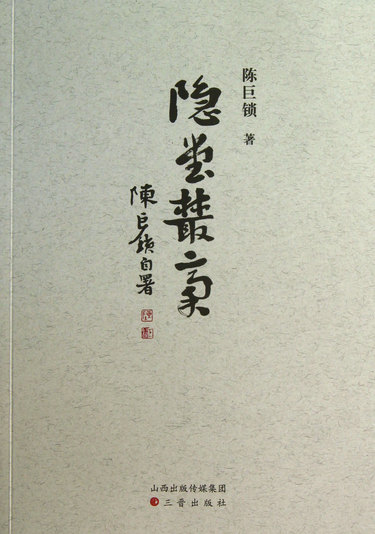 陈巨锁 著
隐堂叢稾
陳巨鎖自署
山西出版传媒集团
三晋出版社